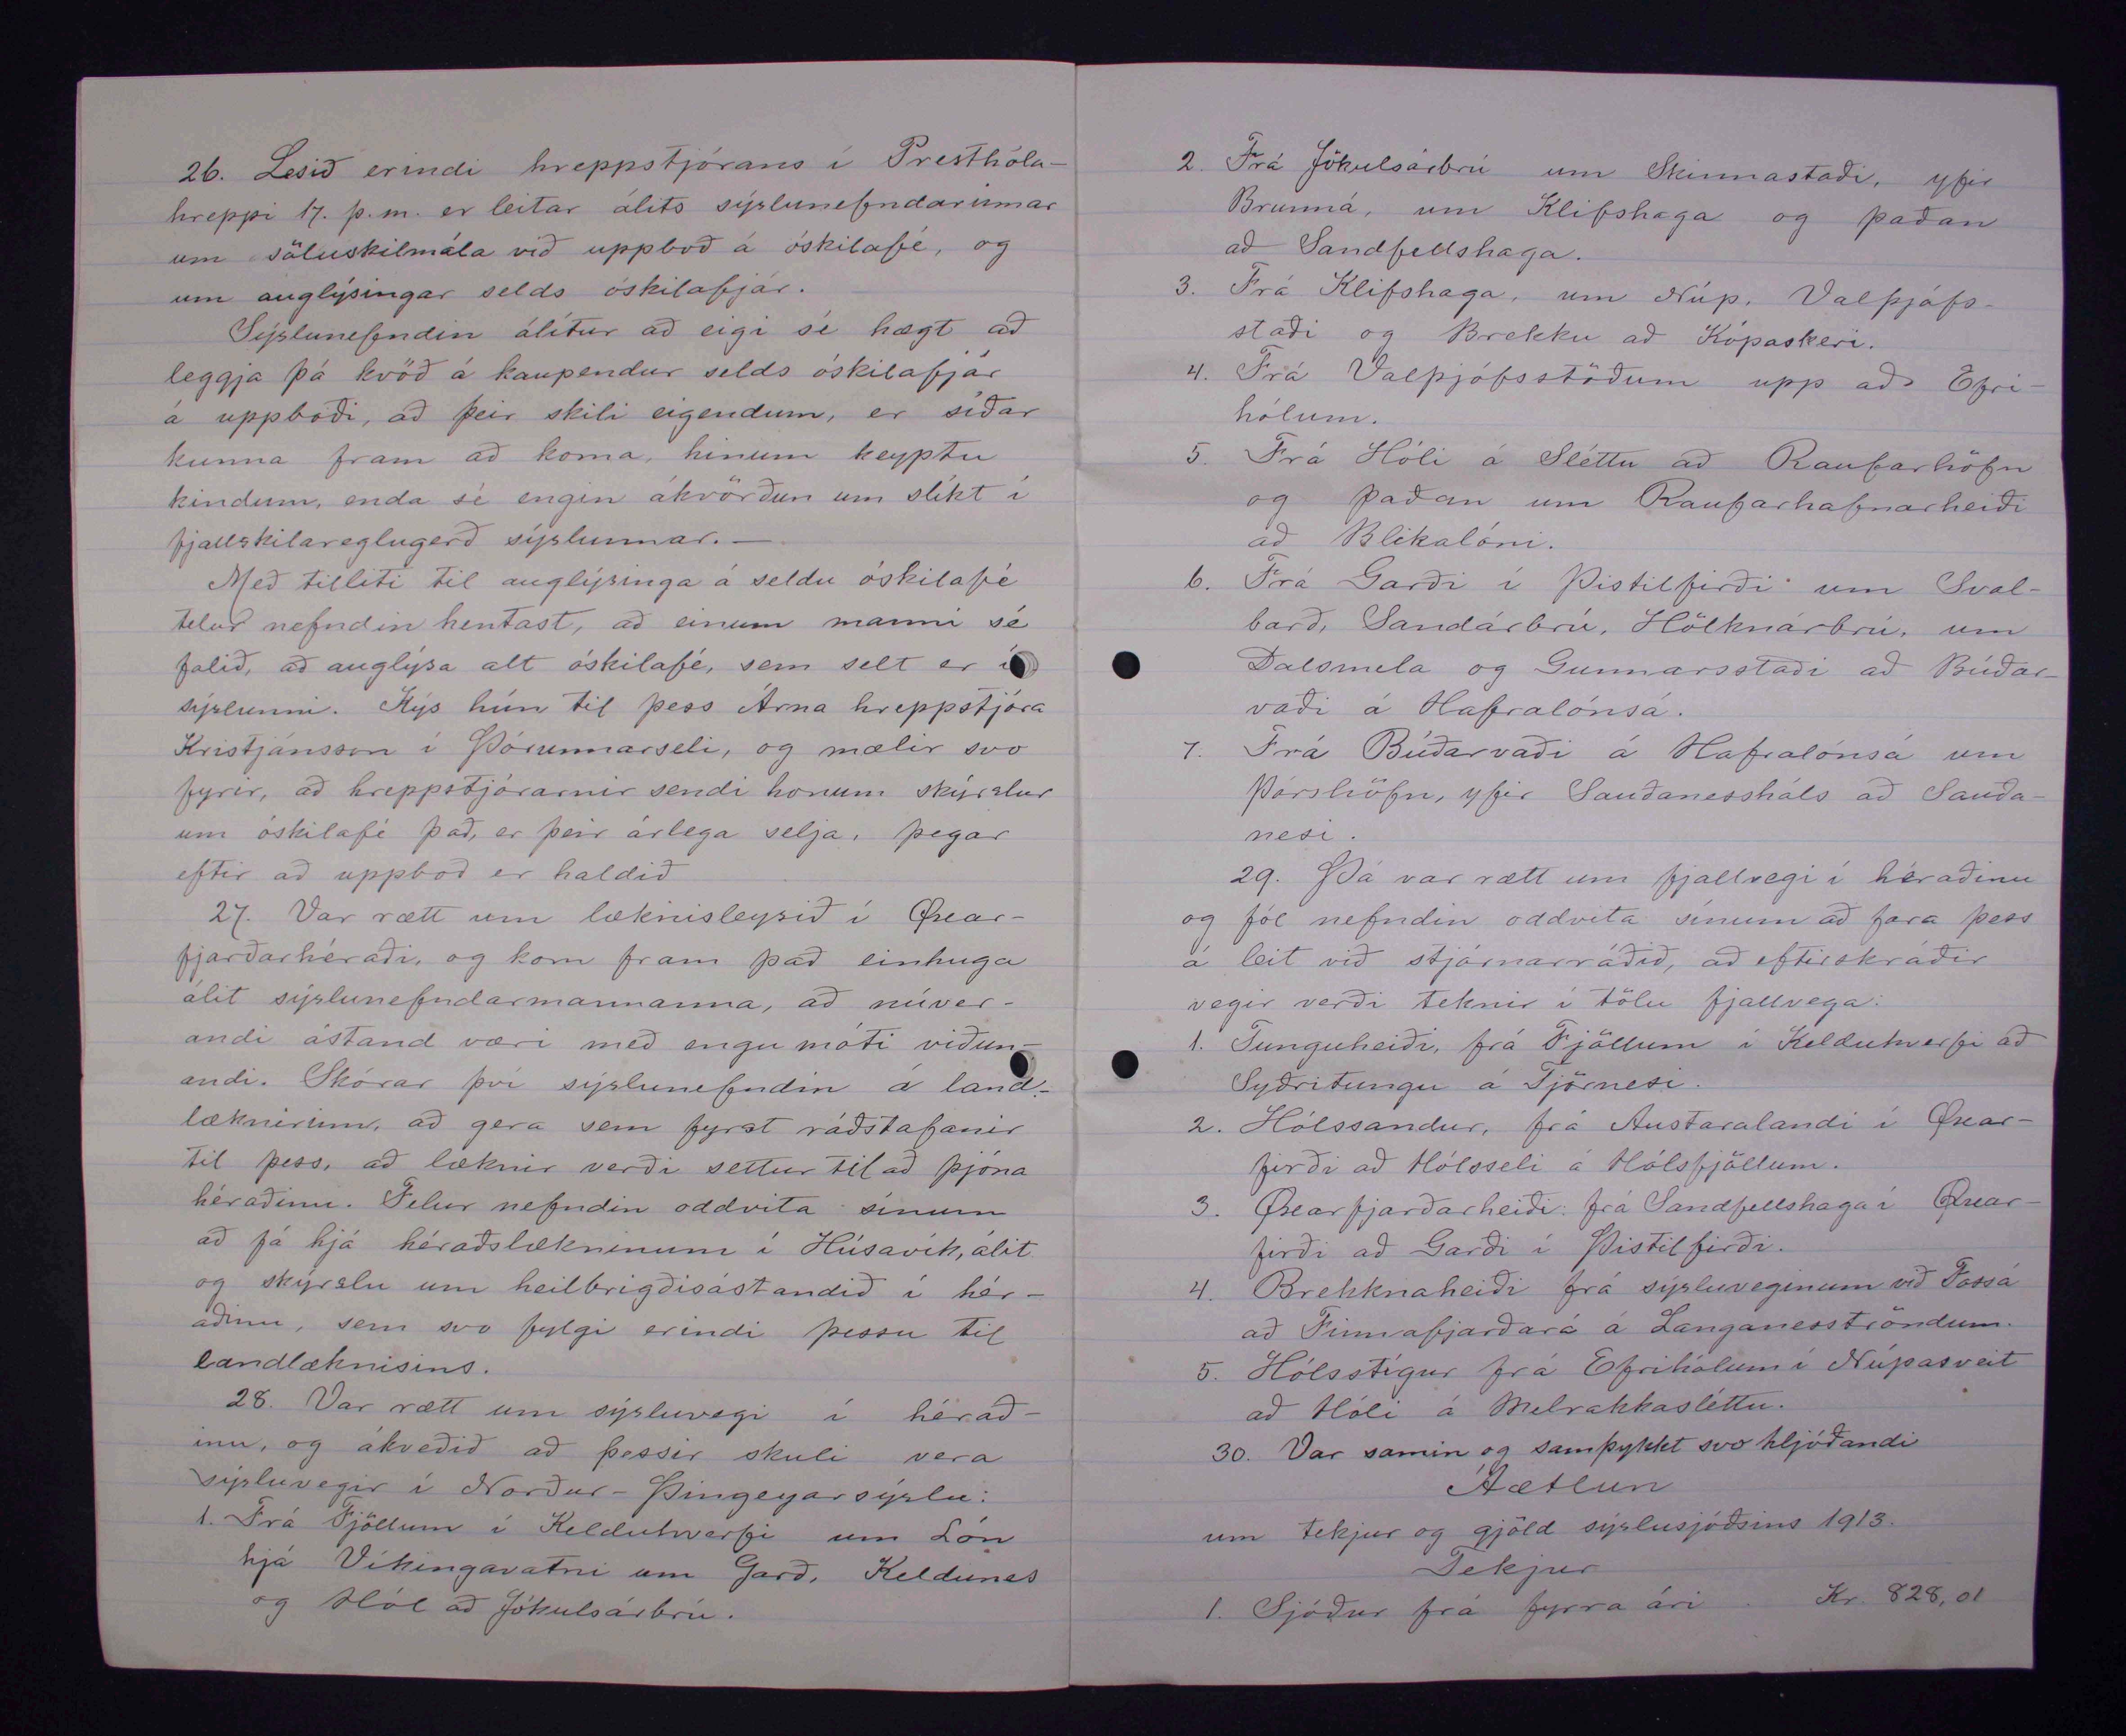 26. Lesið erindi hreppstjórans í Presthóla-
hreppi 17. þ.m. er leitar álits sýslunefndarinnar
um söluskilmála við uppboð á óskilafé, og
um auglýsingar selds óskilafjár.
Sýslunefndin álítur að eigi sé hægt að
leggja þá kvöð á kaupendur selds óskilafjár
á uppboði, að þeir skili eigendum, er síðar
kunna fram að koma, hinum keyptu
kindum, enda sé engin ákvörðun um slíkt í
fjallskilareglugerð sýslunnar. —
Með tilliti til auglýsinga á seldu óskilafé
telur nefndin hentast, að einum manni sé
falið, að auglýsa alt óskilafé, sem selt er í
sýslunni. Kýs hún til þess Árna hreppstjóra
Kristjánsson í Þórunnarseli, og mælir svo
fyrir, að hreppstjórarnir sendi honum skýrslur
um óskilafé það, er þeir árlega selja, þegar
eftir að uppboð er haldið
27. Var rætt um læknisleysið í Øxar-
fjarðarhéraði, og kom fram það einhuga
álit sýslunefndarmannanna, að núver-
andi ástand væri með engu móti viðun-
andi. Skórar því sýslunefndin á land-
læknirinn, að gera sem fyrst ráðstafanir
til þess, að læknir verði settur til að þjóna
héraðinu. Felur nefndin oddvita sínum
að fá hjá héraðslækninum í Húsavík, álit
og skýrslu um heilbrigðisástandið í hér-
aðinu, sem svo fylgi erindi þessu til
landlæknisins.
28. Var rætt um sýsluvegi í hérað-
inu, og ákveðið að þessir skuli vera
sýsluvegir í Norður-Þingeyarsýslu:
1. Frá Fjöllum í Kelduhverfi um Lón
hjá Víkingavatni um Garð, Keldunes
og Hól að Jökulsárbrú.
2. Frá Jökulsárbrú um Skinnastaði, yfir
Brunná, um Klifshaga og þaðan
að Sandfellshaga.
3. Frá Klifshaga, um Núp, Valþjófs-
staði og Brekku að Kópaskeri.
4. Frá Valþjófsstöðum upp að Efri-
hólum.
5. Frá Hóli á Sléttu að Raufarhöfn
og þaðan um Raufarhafnarheiði
að Blikalóni.
6. Frá Garði í Þistilfirði um Sval-
barð, Sandárbrú, Hölknárbrú, um
Dalsmela og Gunnarsstaði að Búðar-
vaði á Hafralónsá.
7. Frá Búðarvaði á Hafralónsá um
Þórshöfn, yfir Sauðanessháls að Sauða-
nesi.
29. Þá var rætt um fjallvegi í héraðinu
og fól nefndin oddvita sínum að fara þess
á leit við stjórnarráðið, að eftirskráðir
vegir verði teknir í tölu fjallvega:
1. Tunguheiði, frá Fjöllum í Kelduhverfi að
Syðritungu á Tjörnesi.
2. Hólssandur, frá Austaralandi í Øxar-
firði að Hólsseli á Hólsfjöllum.
3. Øxarfjarðarheiði: frá Sandfellshaga í Øxar-
firði að Garði í Þistilfirði.
4. Brekknaheiði frá sýsluveginum við Fossá
að Finnafjarðará á Langanesströndum.
5. Hólsstígur frá Efrihólum í Núpasveit
að Hóli á Melrakkasléttu.
30. Var samin og samþykkt svo hljóðandi
Áætlun
um tekjur og gjöld sýslusjóðsins 1913.
Tekjur
1. Sjóður frá fyrra ári . Kr. 828,01